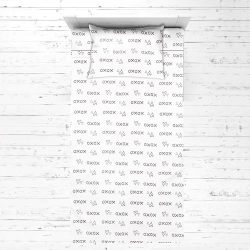 OXOX OXOX
OXOX OXOX
OXOX OXOX
OXOX OXOX
OXOX OXOX
OXOX OXOX
OXOX OXOX
OXOX OXOX
OXOX OXOX
OXOX OXOX
OXOX OXOX
OXOX OXOX
OXOX OXOX
OXOX OXOX